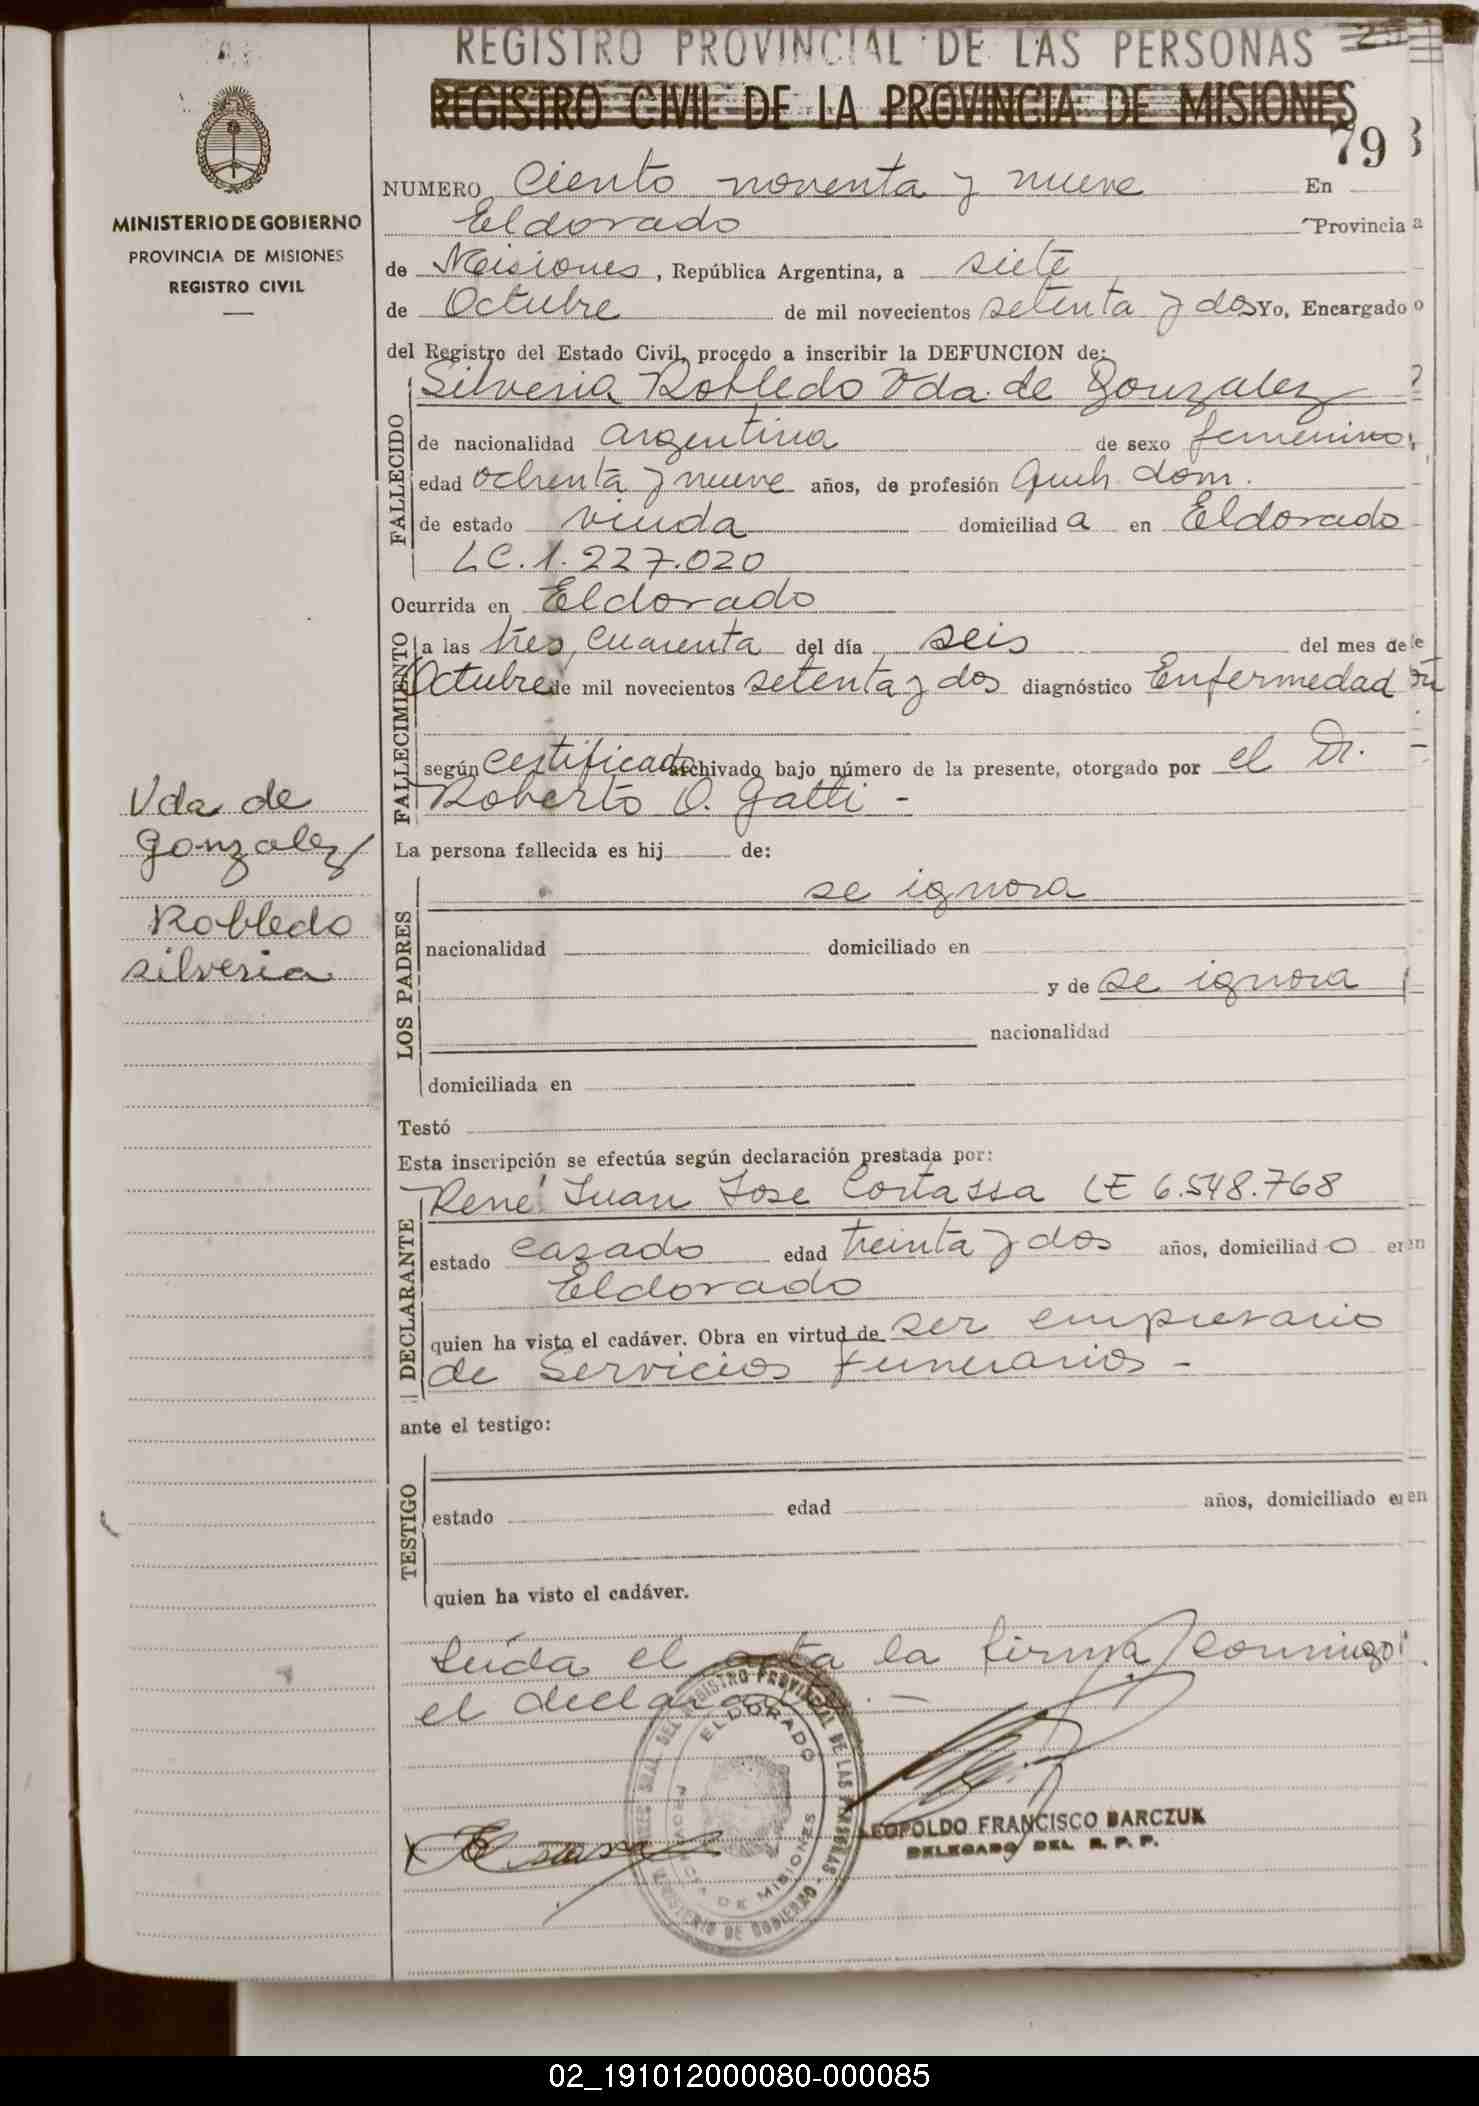 REGISTRO PROVINCIAL DE LAS PERSONAS
REGISTRO CIVIL DE LA PROVINCIA DE MISIONES
79
MINISTERIO DE GOBIERNO
PROVINCIA DE MISIONES
REGISTRO CIVIL
NUMERO Ciento noventa y nueve En
Eldorado Provincia
de Misiones, República Argentina, a siete
de Octubre de mil novecientos setenta y dos Yo, Encargado
del Registro del Estado Civil, procedo a inscribir la DEFUNCION de:
FALLECIDO
Silveria Robledo Vda. de Gonzalez
de nacionalidad argentina de sexo femenino,
edad ochenta y nueve años, de profesión Queh. dom.
de estado viuda domiciliad a en Eldorado
LC. 1.227.020
Ocurrida en Eldorado
FALLECIMIENTO
a las tres, cuarenta del día seis del mes de
Octubre de mil novecientos setenta y dos diagnóstico Enfermedad
según certificado archivado bajo número de la presente, otorgado por el Dr.
Roberto O. Gatti -
La persona fallecida es hij de:
LOS PADRES
se ignora
nacionalidad domiciliado en
y de se ignora
nacionalidad
domiciliada en
Testó
Esta inscripción se efectúa según declaración prestada por:
DECLARANTE
René Juan Jose Cortassa LE 6.548.768
estado casado edad treinta y dos años, domiciliad o en
Eldorado
quien ha visto el cadáver. Obra en virtud de ser empresario
de Servicios Funerarios -
ante el testigo:
TESTIGO
estado edad años, domiciliado en
quien ha visto el cadáver.
Leída el acta la firma conmigo
el declarante. -
ELDORADO
PROVINCIA DE MISIONES
LEOPOLDO FRANCISCO BARCZUK
DELEGADO DEL R. P. P.
Vda de
Gonzalez
Robledo
Silveria
02_191012000080-000085